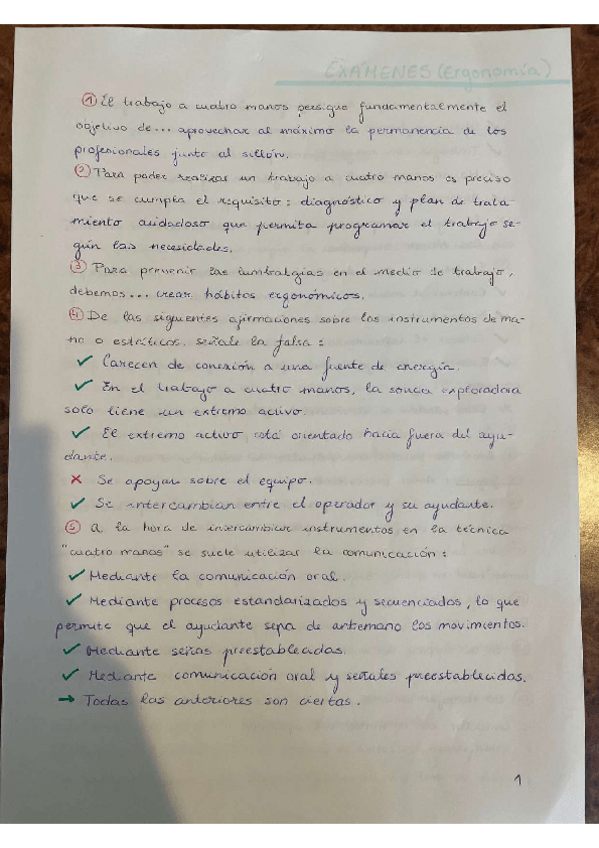 EXÁMENES (Ergonomía)
① El trabajo a cuatro manos persigue fundamentalmente el
objetivo de... aprovechar al máximo la permanencia de los
profesionales junto al sillón.
② Para poder realizar un trabajo a cuatro manos es preciso
que se cumpla el requisito: diagnóstico y plan de trata-
miento cuidadoso que permita programar el trabajo se-
gún las necesidades.
③ Para prevenir las lumbalgias en el medio de trabajo,
debemos... crear hábitos ergonómicos.
④ De las siguientes afirmaciones sobre los instrumentos de ma-
no o estáticos, señale la falsa:
✓ Carecen de conexión a una fuente de energía.
✓ En el trabajo a cuatro manos, la sonda exploradora
solo tiene un extremo activo.
✓ El extremo activo está orientado hacia fuera del ayu-
dante.
✗ Se apoyan sobre el equipo.
✓ Se intercambian entre el operador y su ayudante.
⑤ A la hora de intercambiar instrumentos en la técnica
"cuatro manos" se suele utilizar la comunicación:
✓ Mediante la comunicación oral.
✓ Mediante procesos estandarizados y secuenciados, lo que
permite que el ayudante sepa de antemano los movimientos.
✓ Mediante señas preestablecidas.
✓ Mediante comunicación oral y señales preestablecidas.
→ Todas las anteriores son ciertas.
1